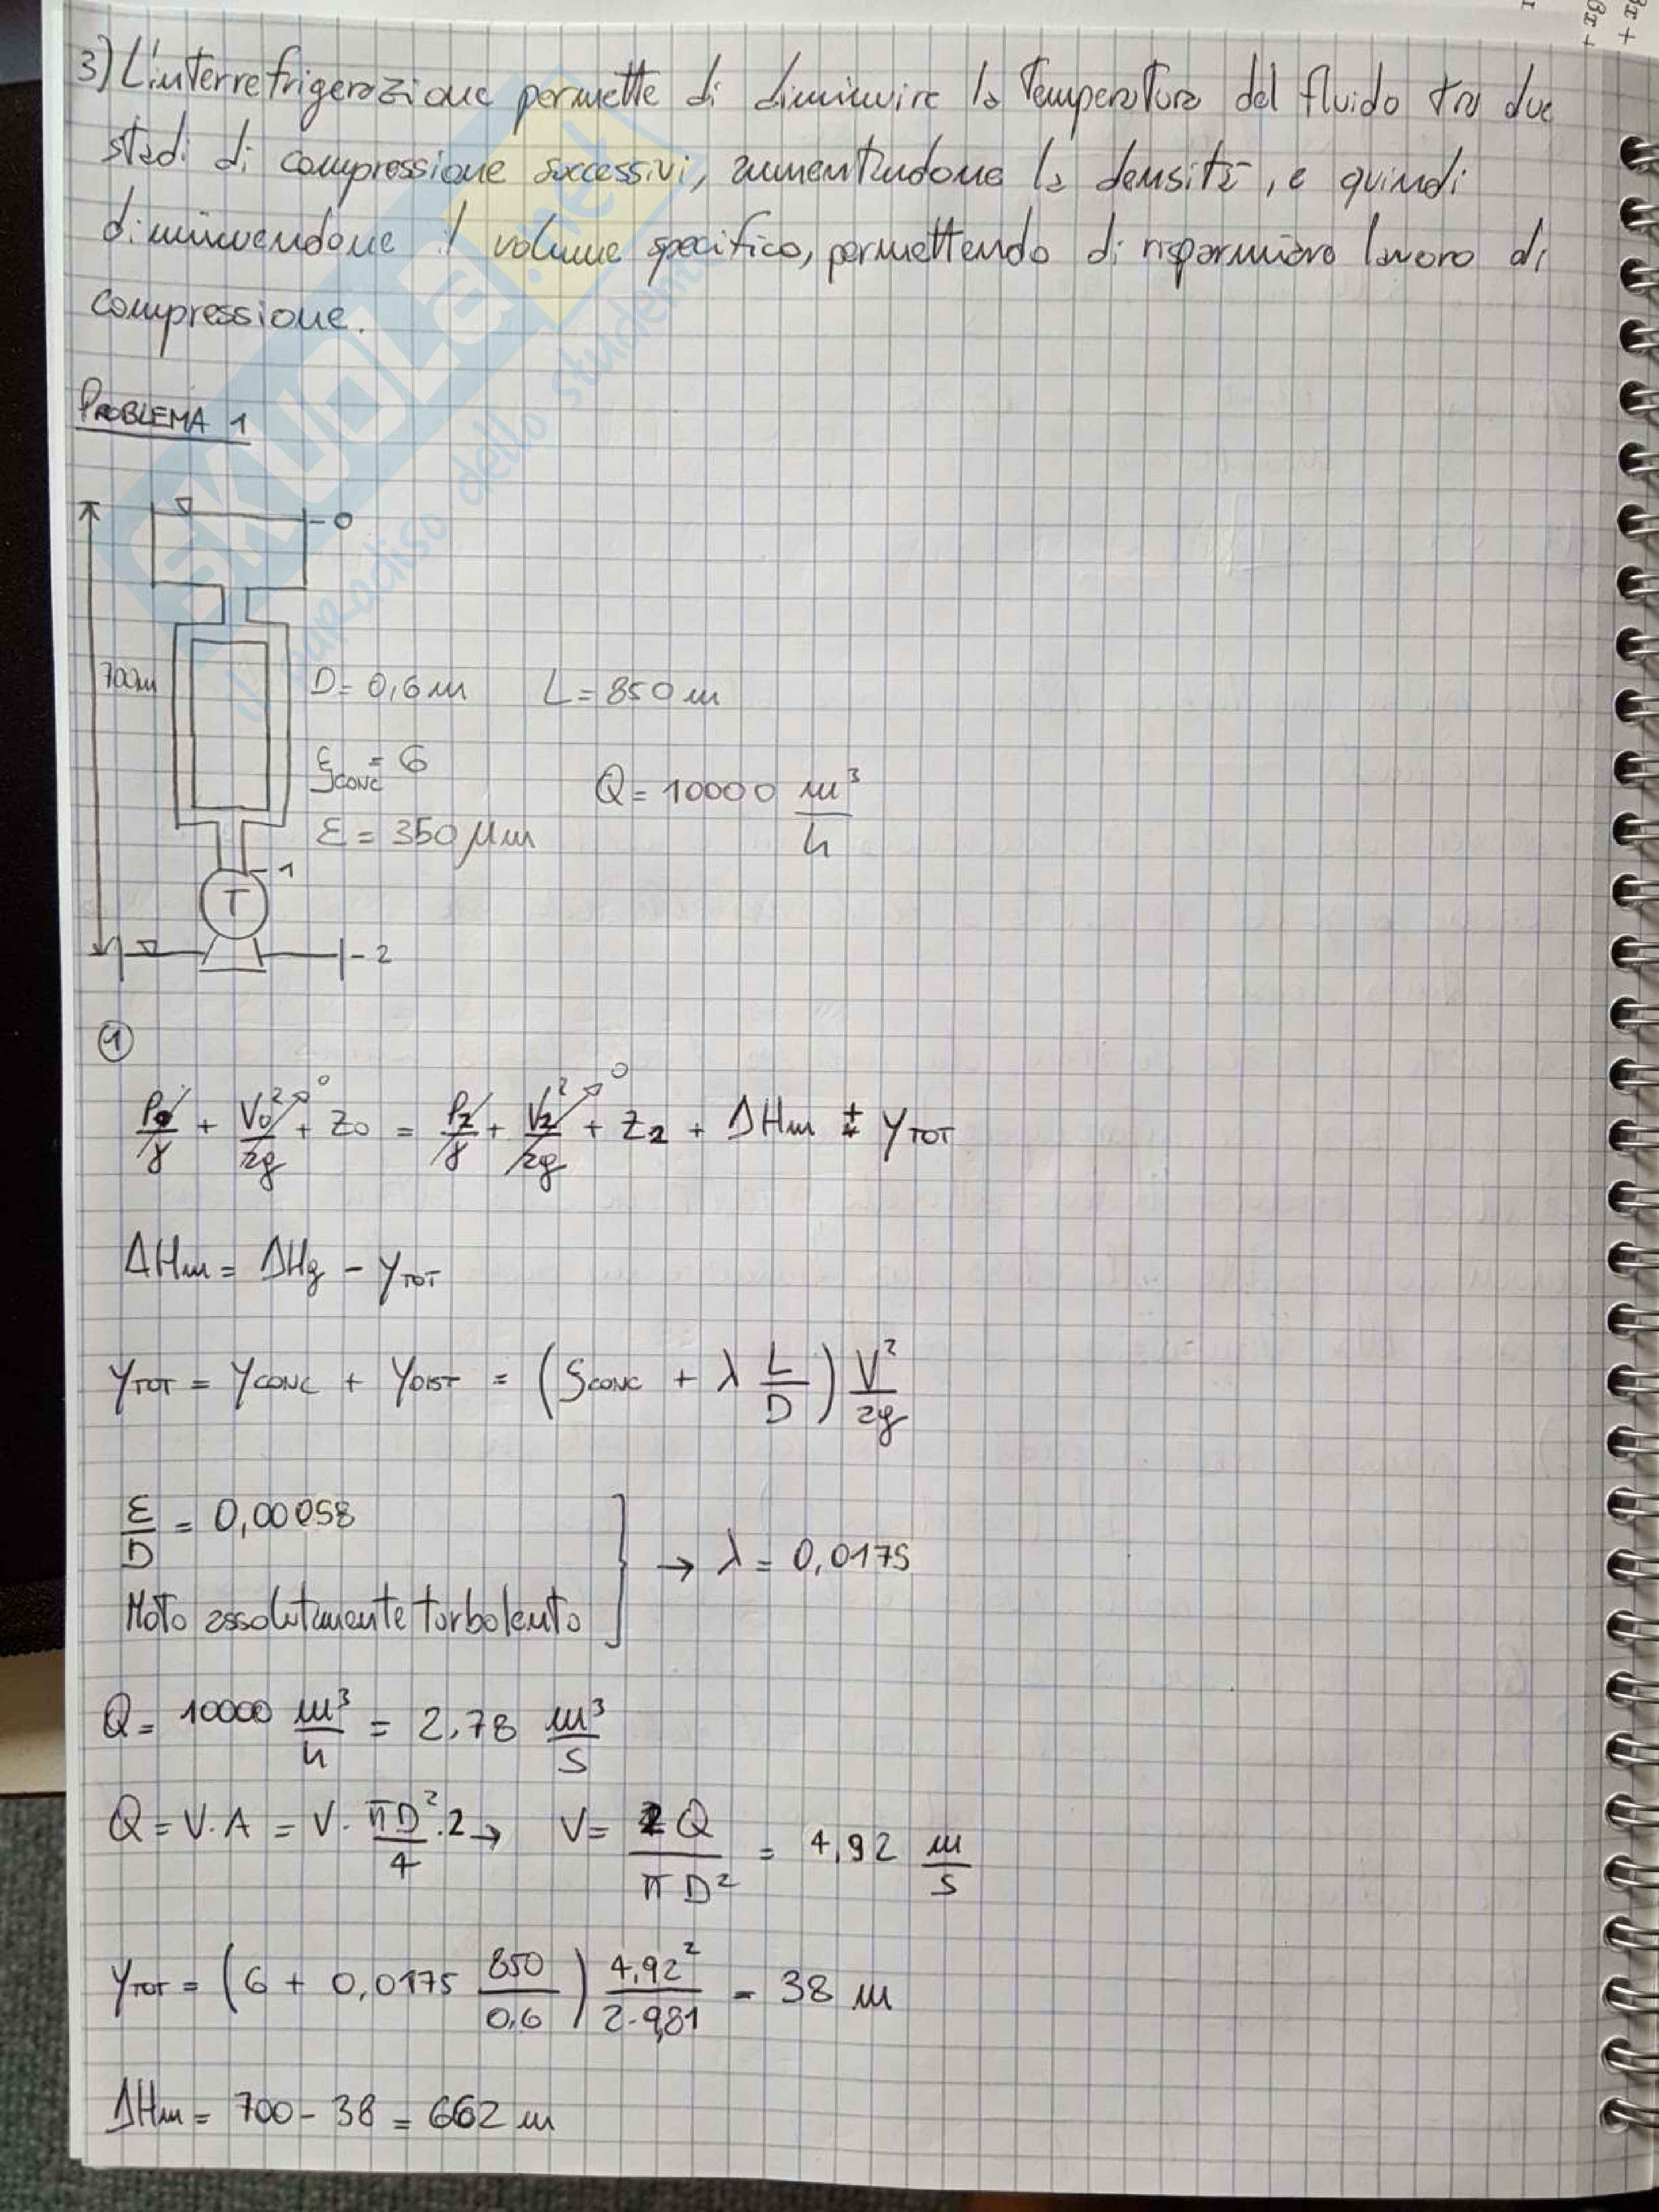 3) L'interrefrigerazione permette di diminuire la temperatura del fluido tra due
stadi di compressione successivi, aumentandone la densità, e quindi
diminuendone il volume specifico, permettendo di risparmiare lavoro di
compressione.
PROBLEMA 1
0
700m
D= 0,6 m L = 850 m
ξCONC = 6 Q = 10000 m³/h
ε = 350 μm
1
T
2
①
P0/γ + V0²/2g → 0 + Z0 = P2/γ + V2²/2g → 0 + Z2 + ΔHm ± YTOT
ΔHm = ΔHg - YTOT
YTOT = YCONC + YDIST = (ξCONC + λ L/D) V²/2g
ε/D = 0,00058
→ λ = 0,0175
Moto assolutamente turbolento
Q = 10000 m³/h = 2,78 m³/s
Q = V·A = V· πD²/4 ·2 → V = 2Q/πD² = 4,92 m/s
YTOT = (6 + 0,0175 850/0,6) 4,92²/2·9,81 = 38 m
ΔHm = 700 - 38 = 662 m
SKUOLA.net
il paradiso dello studente